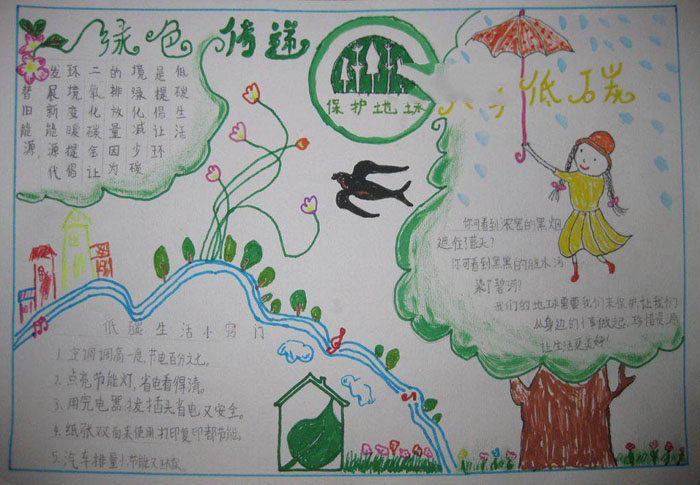 绿色传递
保护地球
低碳
低碳生活
是提倡让环
境绿化减少碳
的排放量因为
二氧化碳会让
环境变暖提倡
发展新能源代
替旧能源
你可看到浓黑的黑烟
遮住了蓝天?
你可看到黑黑的脏水污
染了碧河?
我们的地球需要我们来保护,让我们
从身边的小事做起,珍惜资源
让生活更美好!
低碳生活小窍门
1.空调调高一度,节电百分之七。
2.点亮节能灯,省电看得清。
3.用完电器拔插头省电又安全。
4.纸张双面来使用打印复印都节能。
5.汽车排量小节能又环保。